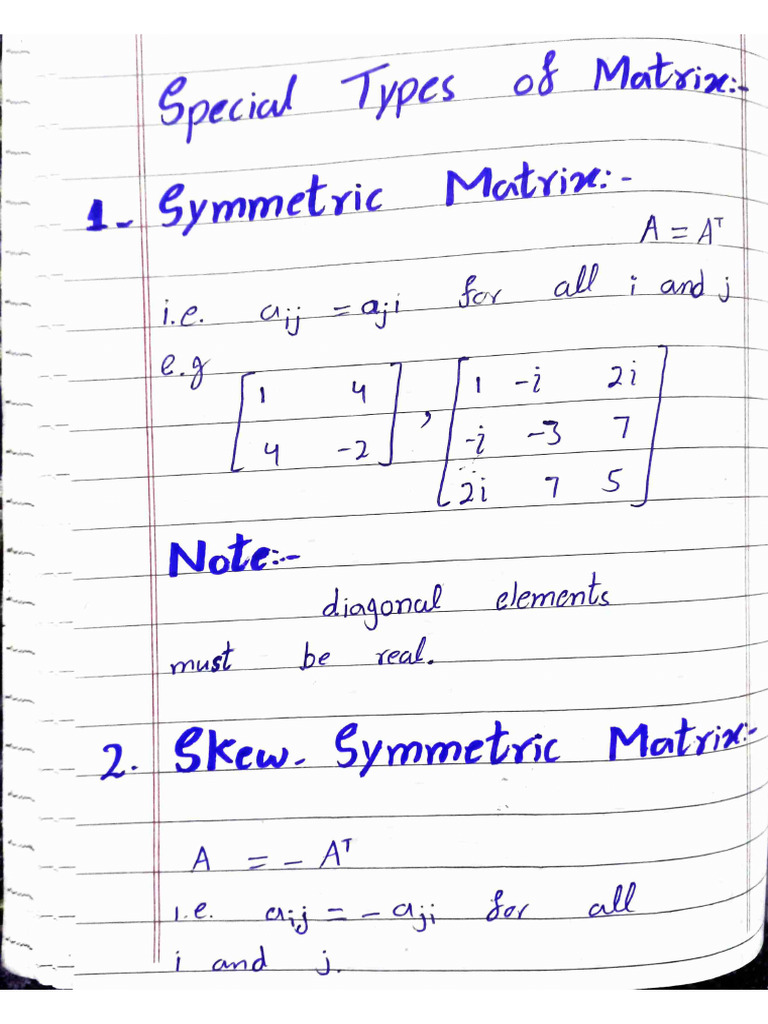 Special Types of Matrix:-
1- Symmetric Matrix:-
A = Aᵀ
i.e. aij = aji for all i and j
e.g
[1 4
4 -2], [1 -i 2i
-i -3 7
2i 7 5]
Note:-
diagonal elements
must be real.
2. Skew-Symmetric Matrix:-
A = - Aᵀ
i.e. aij = - aji for all
i and j.